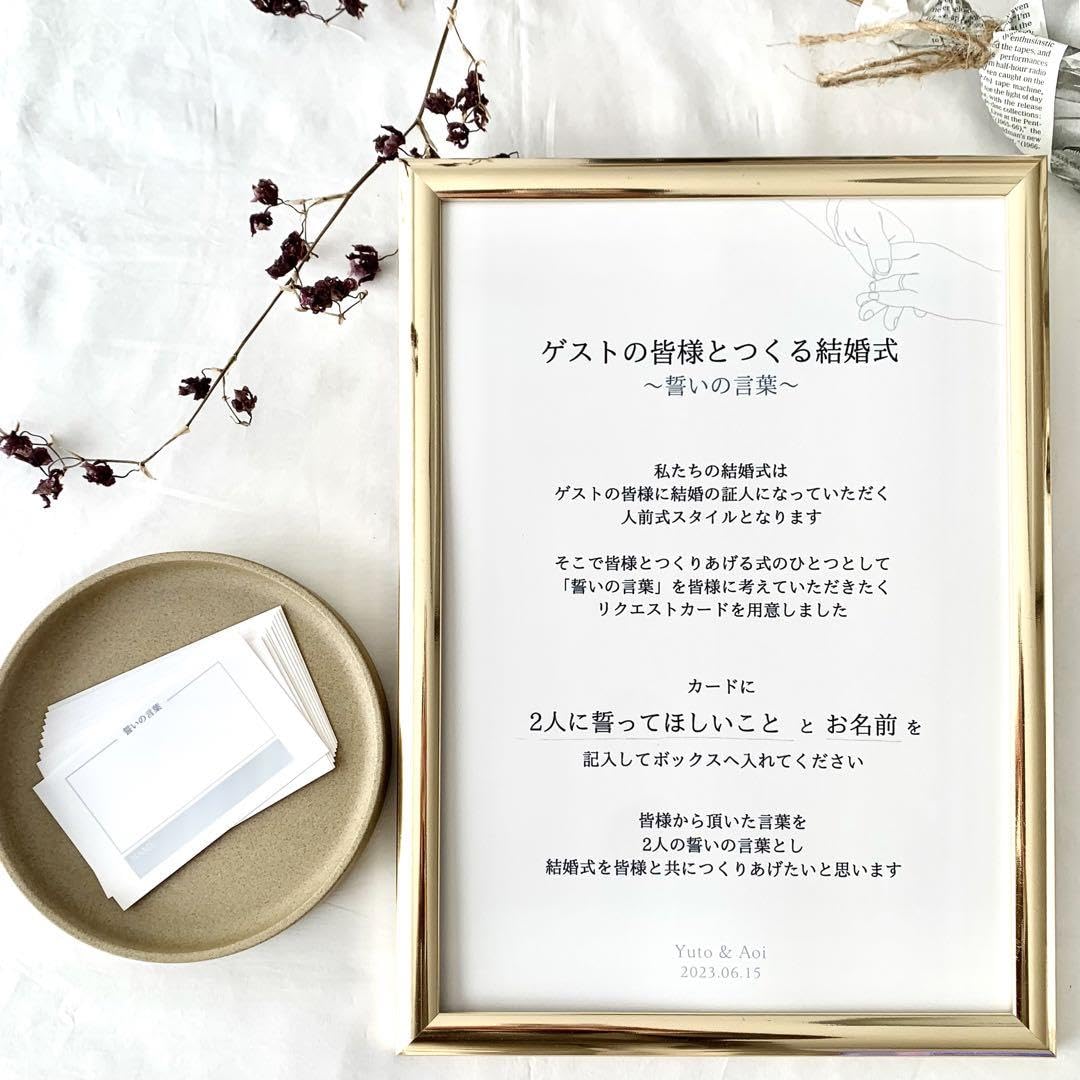 even
I'm
the
enthusiastic
the tapes, and
performances
half-hour radio
caught on the
tape machine,
for the light of day
with the release
collections:
Live at the Pent-
(1965-66)," the
new
(1966-
ゲストの皆様とつくる結婚式
〜誓いの言葉〜
私たちの結婚式は
ゲストの皆様に結婚の証人になっていただく
人前式スタイルとなります
そこで皆様とつくりあげる式のひとつとして
「誓いの言葉」を皆様に考えていただきたく
リクエストカードを用意しました
カードに
2人に誓ってほしいこと と お名前 を
記入してボックスへ入れてください
皆様から頂いた言葉を
2人の誓いの言葉とし
結婚式を皆様と共につくりあげたいと思います
Yuto & Aoi
2023.06.15
誓いの言葉